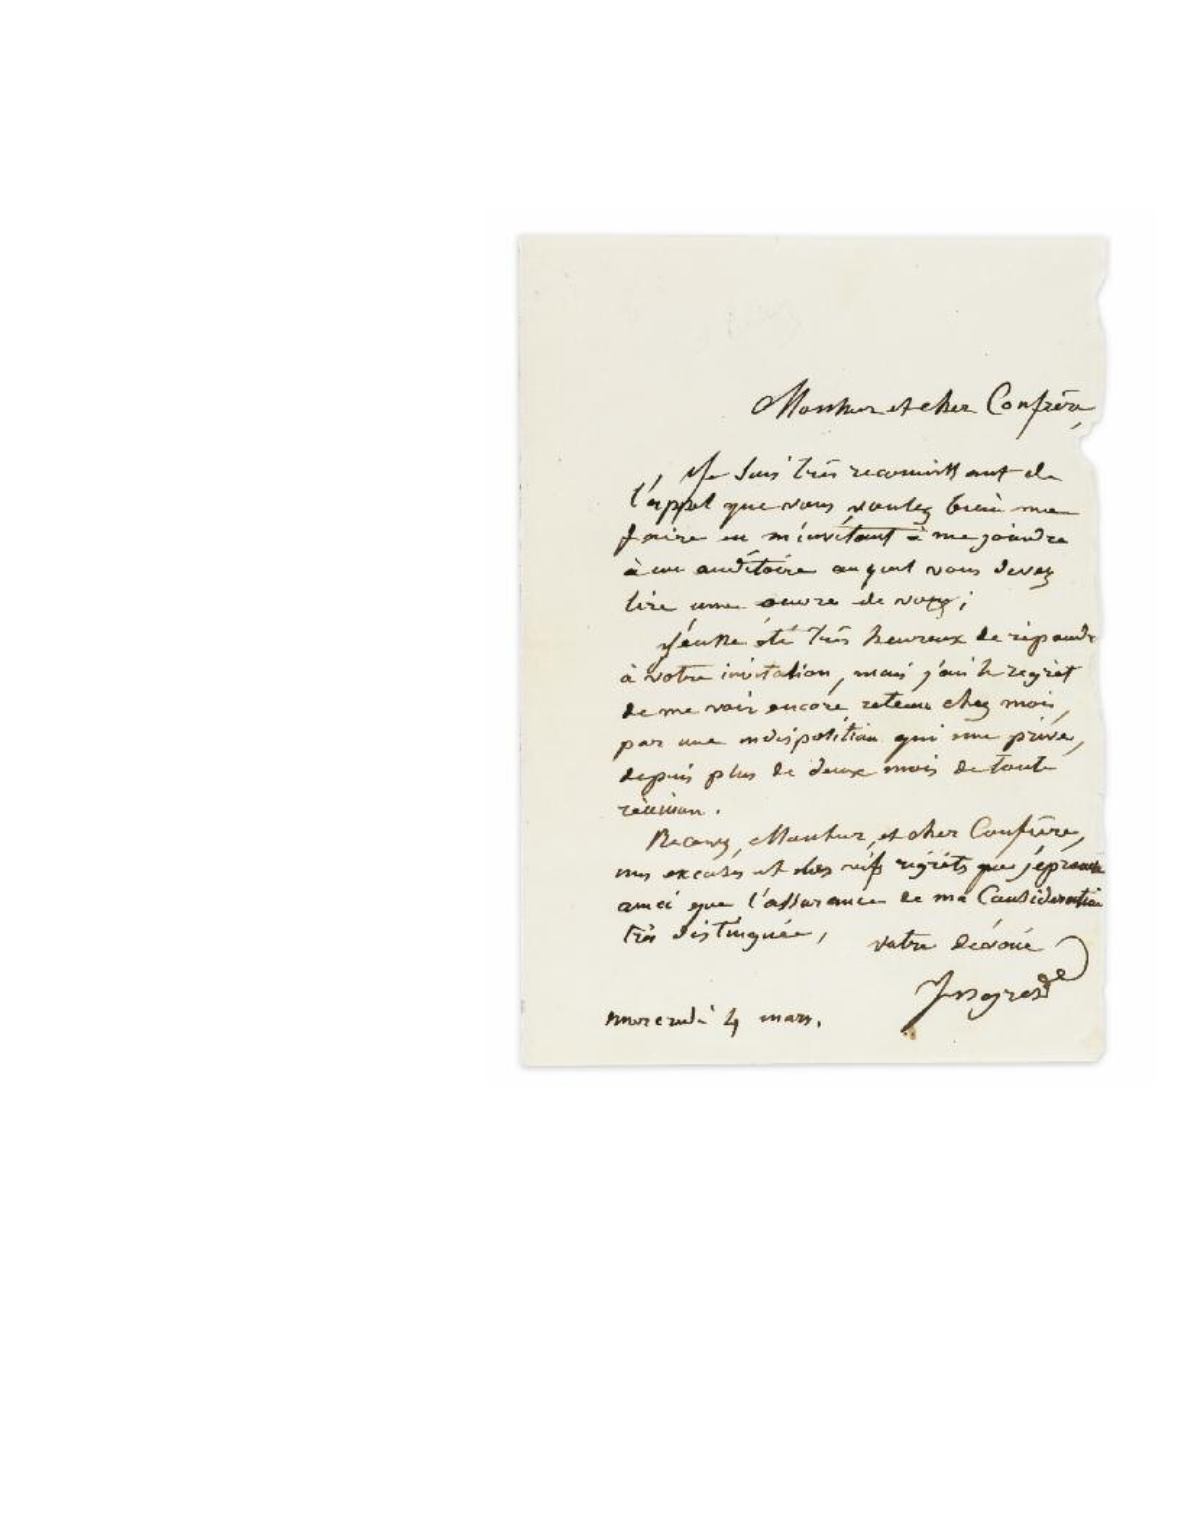 Monsieur et cher Confrère,
Je suis très reconnaissant de
l'appel que vous voulez bien me
faire en m'invitant à me joindre
à un auditoire auquel vous devez
lire une œuvre de vous;
J'eusse été très heureux de répondre
à votre invitation, mais j'ai le regret
de me voir encore retenu chez moi,
par une indisposition qui me prive,
depuis plus de deux mois de toute
réunion.
Recevez, Monsieur, et cher Confrère,
mes excuses et des vifs regrets que j'éprouve
ainsi que l'assurance de ma Considération
très distinguée,
votre dévoué
Ingres
mercredi 4 mars.